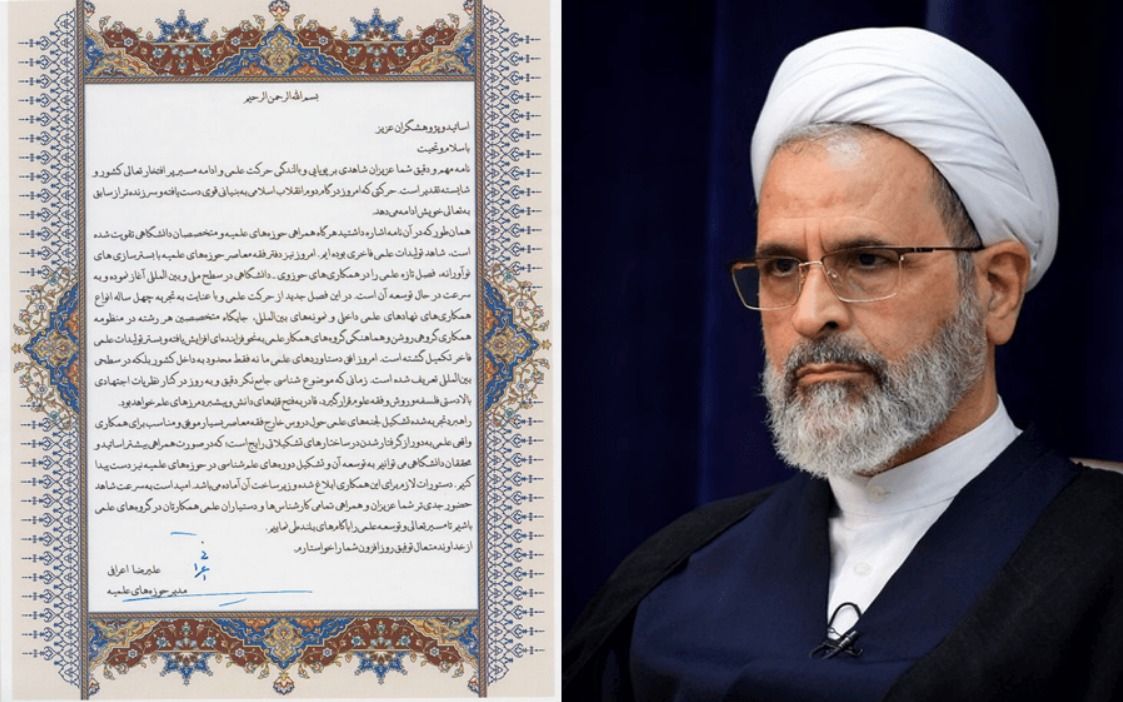 بسم الله الرحمن الرحیم
اساتید و پژوهشگران عزیز
با سلام و تحیت
نامه مهم و دقیق شما عزیزان شاهدی بر پویایی و بالندگی حرکت علمی و ادامه مسیر پر افتخار تعالی کشور و
شایسته تقدیر است. حرکتی که امروز در گام دوم انقلاب اسلامی به بنیانی قوی دست یافته و سرزنده‌تر از سابق
به تعالی خویش ادامه می‌دهد.
همان‌طور که در آن نامه اشاره داشتید هرگاه همراهی حوزه‌های علمیه و متخصصان دانشگاهی تقویت شده
است، شاهد تولیدات علمی فاخری بوده ایم. امروز نیز دفتر فقه معاصر حوزه‌های علمیه با بسترسازی های
نوآورانه، فصل تازه علمی را در همکاری‌های حوزوی - دانشگاهی در سطح ملی و بین المللی آغاز نموده و به
سرعت در حال توسعه آن است. در این فصل جدید از حرکت علمی و با عنایت به تجربه چهل ساله انواع
همکاری‌های نهادهای علمی داخلی و نمونه‌های بین‌المللی، جایگاه متخصصین هر رشته در منظومه
همکاری گروهی روشن و هماهنگی گروه‌های همکار علمی به نحو فزاینده‌ای افزایش یافته و بستر تولیدات علمی
فاخر تکمیل گشته است. امروز افق دستاوردهای علمی ما نه فقط محدود به داخل کشور بلکه در سطحی
بین‌المللی تعریف شده است. زمانی که موضوع شناسی جامع نگر دقیق و به روز در کنار نظریات اجتهادی
بالادستی فلسفه و روش و فقه علوم قرار گیرد، قادر به فتح قله‌های دانش و پیشبرد مرزهای علم خواهد بود.
راهبرد تجربه شده تشکیل لجنه‌های علمی حول دروس خارج فقه معاصر بسیار موفق و مناسب برای همکاری
واقعی علمی به دور از گرفتار شدن در ساختارهای تشکیلاتی رایج است؛ که در صورت همراهی بیشتر اساتید و
محققان دانشگاهی می توانیم به توسعه آن و تشکیل دوره‌های علم‌شناسی در حوزه‌های علمیه نیز دست پیدا
کنیم. دستورات لازم برای این همکاری ابلاغ شده و زیرساخت آن آماده می‌باشد. امید است به سرعت شاهد
حضور جدی‌تر شما عزیزان و همراهی تمامی کارشناس‌ها و دستیاران علمی همکارتان در گروه‌های علمی
باشیم تا مسیر تعالی و توسعه علمی را با گام‌های بلند طی نماییم.
از خداوند متعال توفیق روزافزون شما را خواستارم.
علیرضا اعرافی
مدیر حوزه‌های علمیه